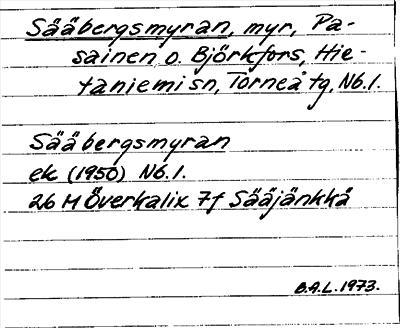 Sääbergsmyran, myr, Pa-
sainen o. Björkfors, Hie-
taniemi sn, Torneå tg, Nb.l.
Sääbergsmyran
ek (1950) Nb.l.
26 M Överkalix 7f Sääjänkkä
B.A.L. 1973.